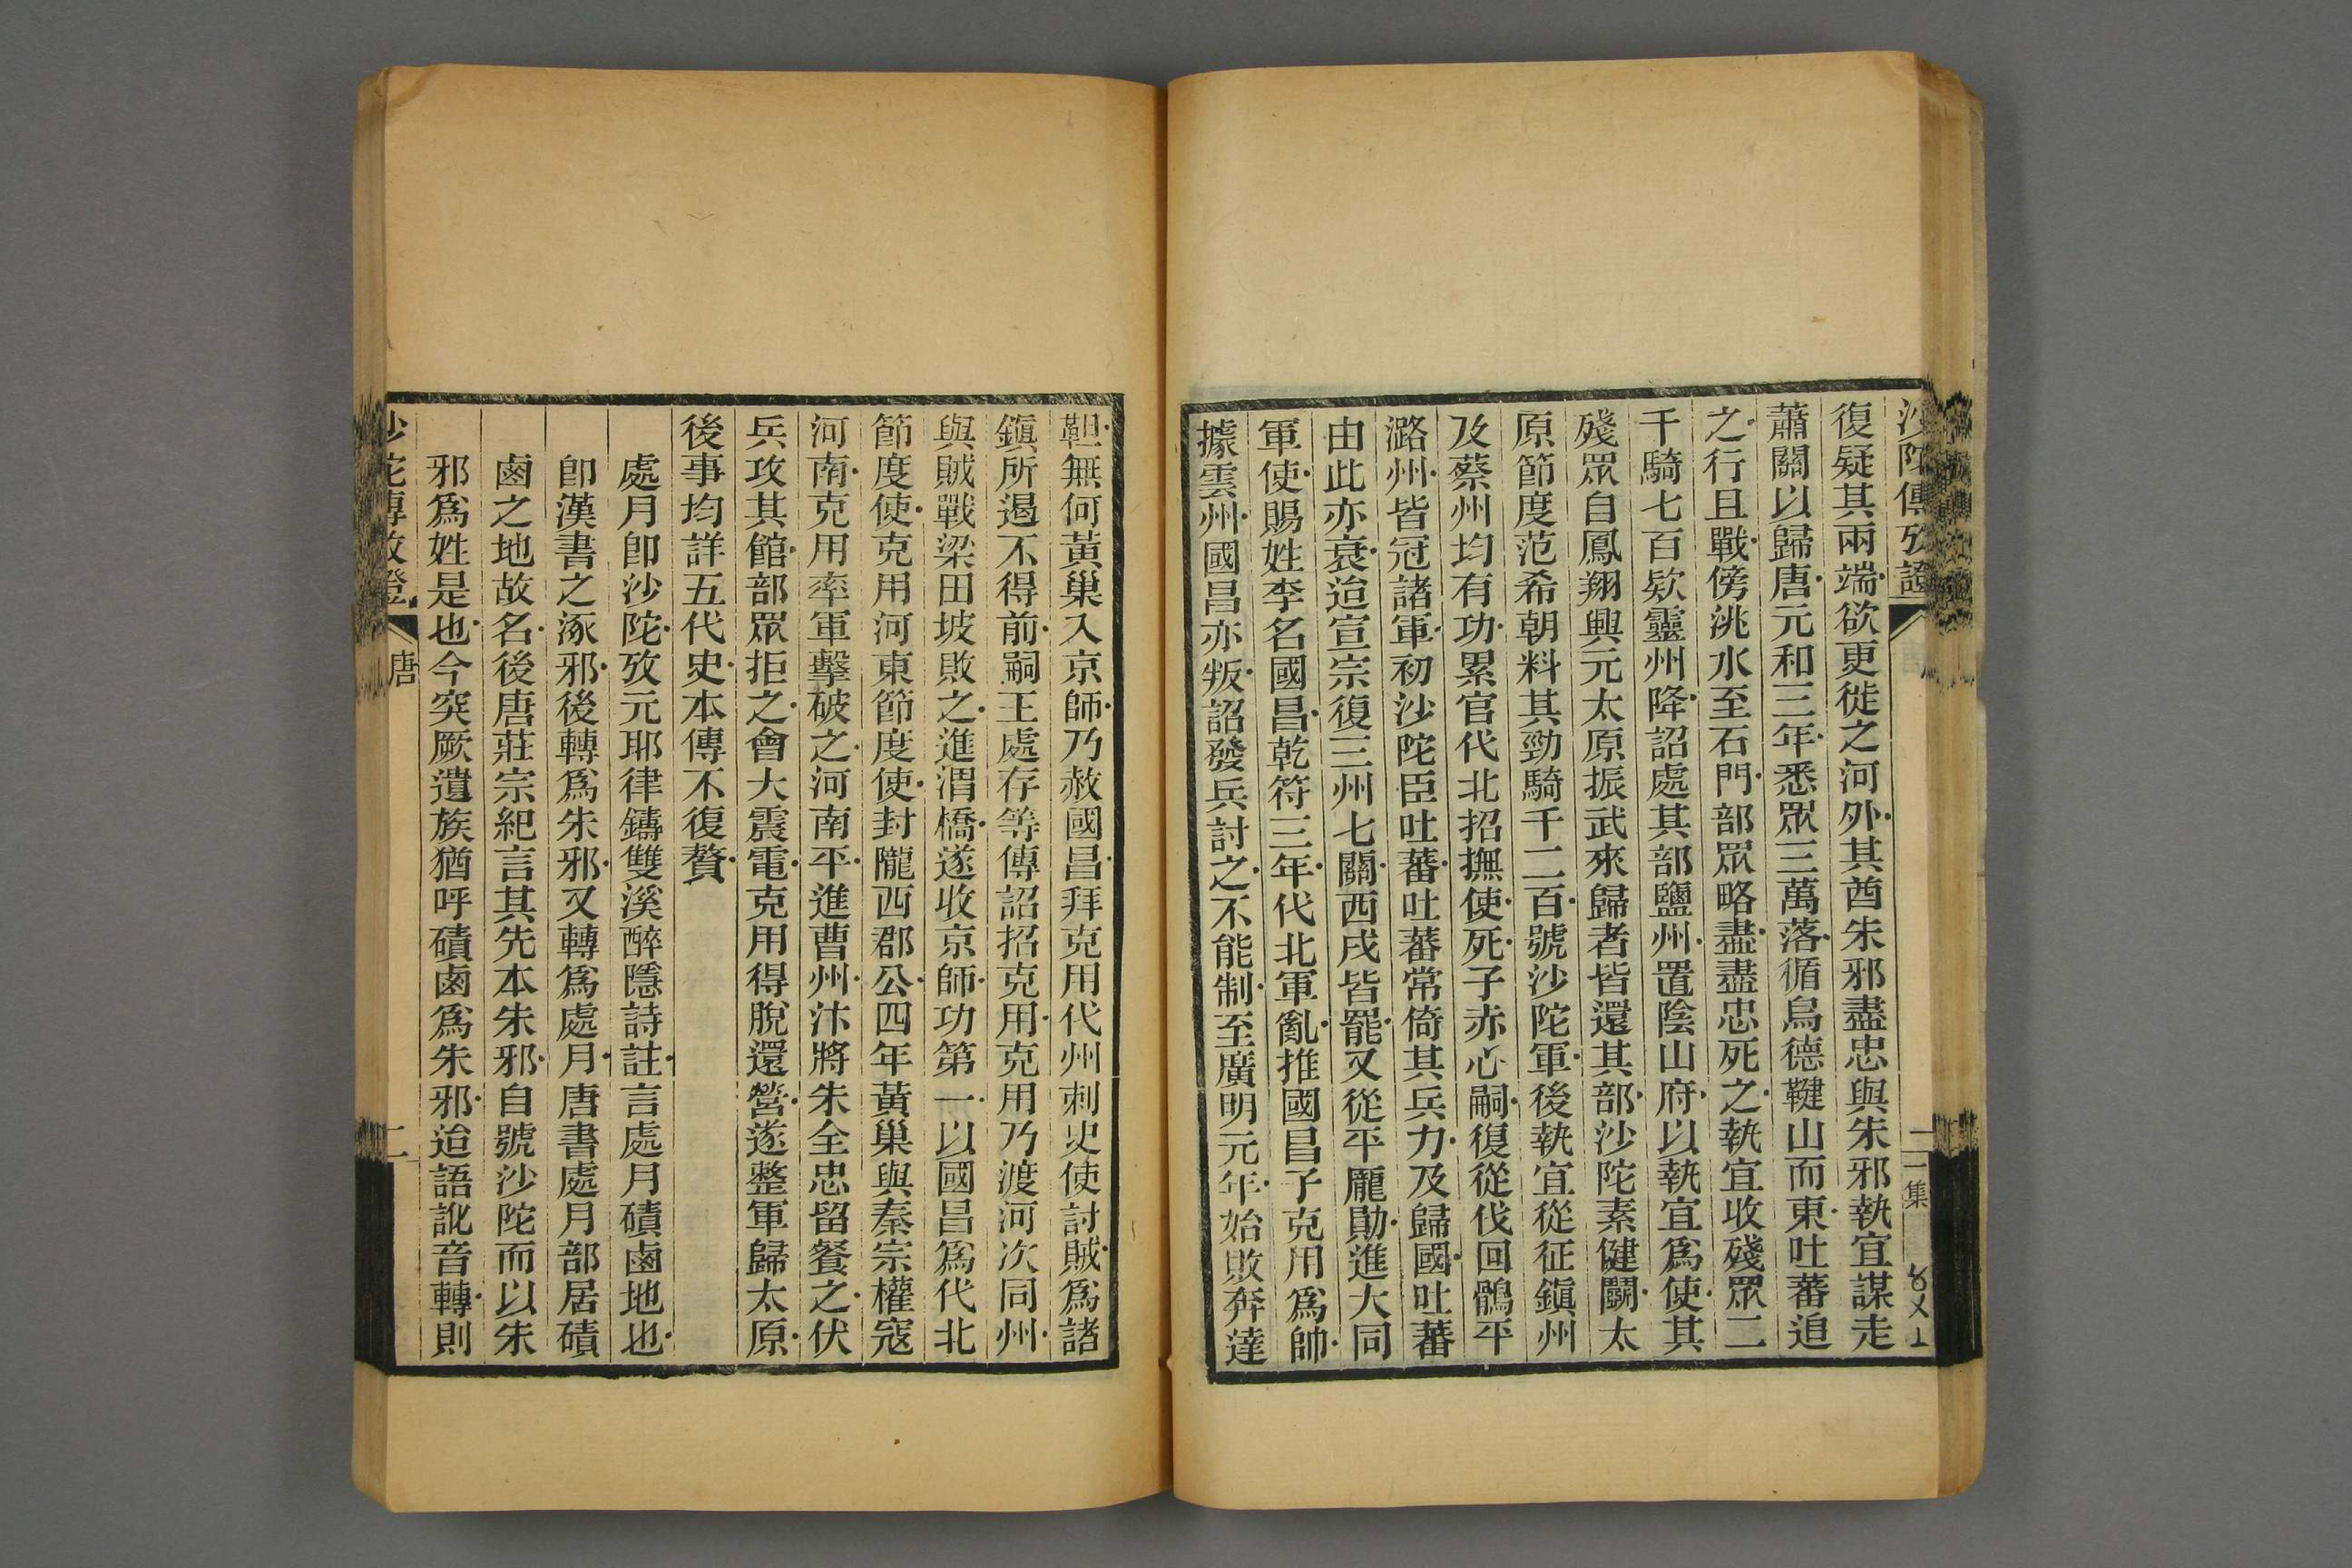 沙陀傳攷證
二集
復疑其兩端欲更徙之河外其酋朱邪盡忠與朱邪執宜謀走
蕭關以歸唐元和三年悉眾三萬落循烏德鞬山而東吐蕃追
之行且戰傍洮水至石門部眾略盡盡忠死之執宜收殘眾二
千騎七百欵靈州降詔處其部鹽州置陰山府以執宜爲使其
殘眾自鳳翔興元太原振武來歸者皆還其部沙陀素健鬭太
原節度范希朝料其勁騎千二百號沙陀軍後執宜從征鎮州
及蔡州均有功累官代北招撫使死子赤心嗣復從伐回鶻平
潞州皆冠諸軍初沙陀臣吐蕃吐蕃常倚其兵力及歸國吐蕃
由此亦衰迨宣宗復三州七關西戌皆罷又從平龐勛進大同
軍使賜姓李名國昌乾符三年代北軍亂推國昌子克用爲帥
據雲州國昌亦叛詔發兵討之不能制至廣明元年始敗奔達
靼無何黃巢入京師乃赦國昌拜克用代州刺史使討賊爲諸
鎮所遏不得前嗣王處存等傳詔招克用克用乃渡河次同州
與賊戰梁田坡敗之進渭橋遂收京師功第一以國昌爲代北
節度使克用河東節度使封隴西郡公四年黃巢與秦宗權寇
河南克用率軍擊破之河南平進曹州汴將朱全忠留餐之伏
兵攻其館部眾拒之會大震電克用得脫還營遂整軍歸太原
後事均詳五代史本傳不復贅
處月卽沙陀攷元耶律鑄雙溪醉隱詩註言處月磧鹵地也
卽漢書之涿邪後轉爲朱邪又轉爲處月唐書處月部居磧
鹵之地故名後唐莊宗紀言其先本朱邪自號沙陀而以朱
邪爲姓是也今突厥遺族猶呼磧鹵爲朱邪迨語訛音轉則
沙陀傳攷證
唐
二